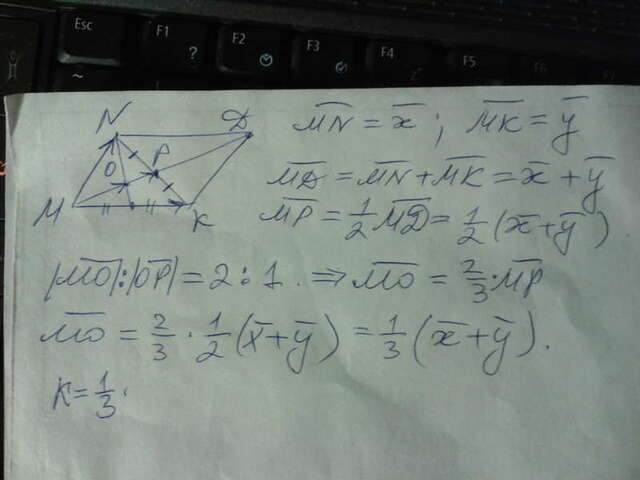 Esc
F1
?
F2
F3
F4
F5
F6
N
D
O
P
M
K
M̅N̅ = x̅ ; M̅K̅ = y̅
M̅D̅ = M̅N̅ + M̅K̅ = x̅ + y̅
M̅P̅ = 1/2 M̅D̅ = 1/2 (x̅ + y̅)
|M̅O̅| : |O̅P̅| = 2 : 1. ⇒ M̅O̅ = 2/3 · M̅P̅
M̅O̅ = 2/3 · 1/2 (x̅ + y̅) = 1/3 (x̅ + y̅).
K = 1/3.